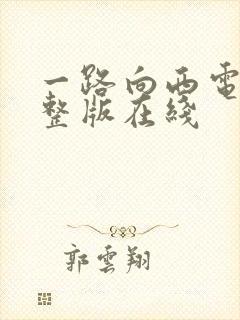 一路向西电
整版在綫
郭雲翔